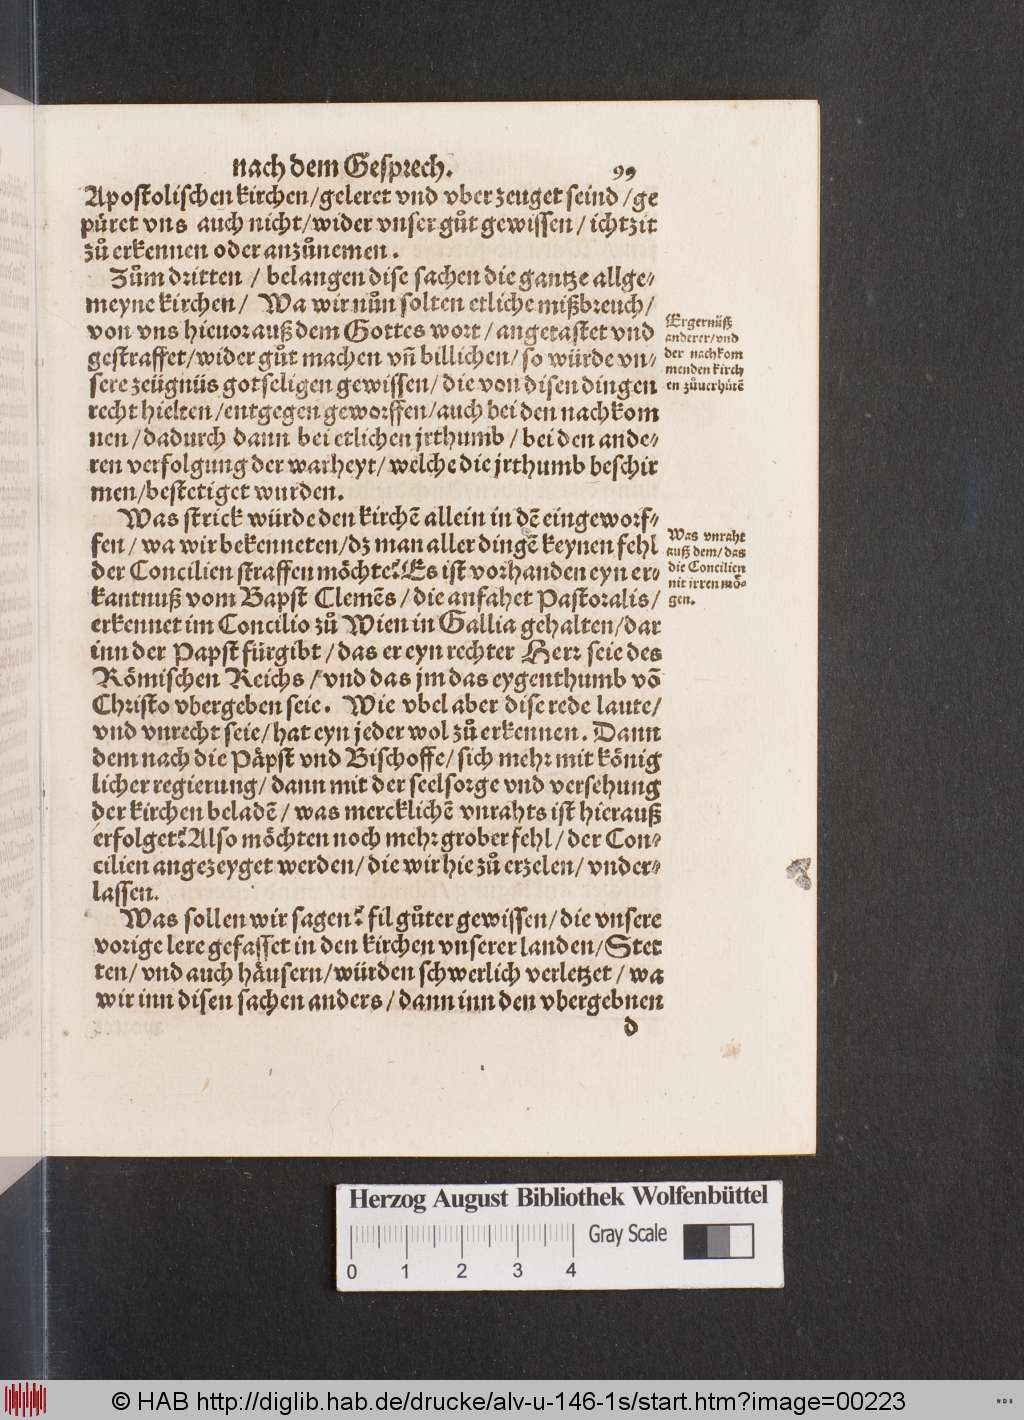 nach dem Gesprech. 99
Apostolischen kirchen/geleret vnd vberzeuget seind/ge
püret vns auch nicht/wider vnser gůt gewissen/ichtzit
zů erkennen oder anzůnemen.
Zům dritten / belangen dise sachen die gantze allge-
meyne kirchen/ Wa wir nůn solten etliche mißbreuch/
von vns hieuor auß dem Gottes wort/angetastet vnd
gestraffet/wider gůt machen vñ billichen/so würde vn-
sere zeügnüs gotseligen gewissen/die von disen dingen
recht hielten/entgegen geworffen/auch bei den nachkom
nen/dadurch dann bei etlichen jrthumb/bei den ande-
ren verfolgung der warheyt/welche die jrthumb beschir
men/bestetiget wurden.
Ergernüß
anderer/vnd
der nachkom
menden kirch
en zůuerhütē
Was strick würde den kirchē allein in dē eingeworf-
fen/wa wir bekenneten/dz man aller dingē keynen fehl
der Concilien straffen möchte? Es ist vorhanden eyn er-
kantnuß vom Bapst Clemēs/die anfahet Pastoralis/
erkennet im Concilio zů Wien in Gallia gehalten/dar
inn der Papst fürgibt/das er eyn rechter Herr seie des
Römischen Reichs/vnd das jm das eygenthumb vō
Christo vbergeben seie. Wie vbel aber dise rede laute/
vnd vnrecht seie/hat eyn jeder wol zů erkennen. Dann
dem nach die Päpst vnd Bischoffe/sich mehr mit könig
licher regierung/dann mit der seelsorge vnd versehung
der kirchen beladē/was mercklichē vnrahts ist hierauß
erfolget? Also möchten noch mehr grober fehl/der Con-
cilien angezeyget werden/die wir hie zů erzelen/vnder-
lassen.
Was vnraht
auß dem/das
die Concilien
nit irren mö-
gen.
Was sollen wir sagen? fil gůter gewissen/die vnsere
vorige lere gefasset in den kirchen vnserer landen/Stet
ten/vnd auch häusern/würden schwerlich verletzet/wa
wir inn disen sachen anders/dann inn den vbergebnen
d
Herzog August Bibliothek Wolfenbüttel
Gray Scale
0 1 2 3 4
© HAB http://diglib.hab.de/drucke/alv-u-146-1s/start.htm?image=00223